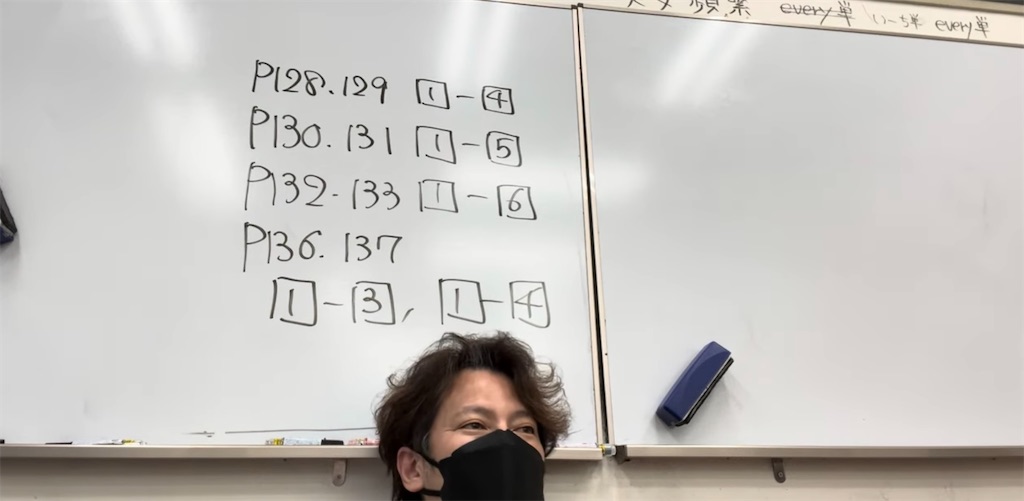 every単 いーち単 every単
P128.129 1-4
P130.131 1-5
P132-133 1-6
P136.137
1-3, 1-4